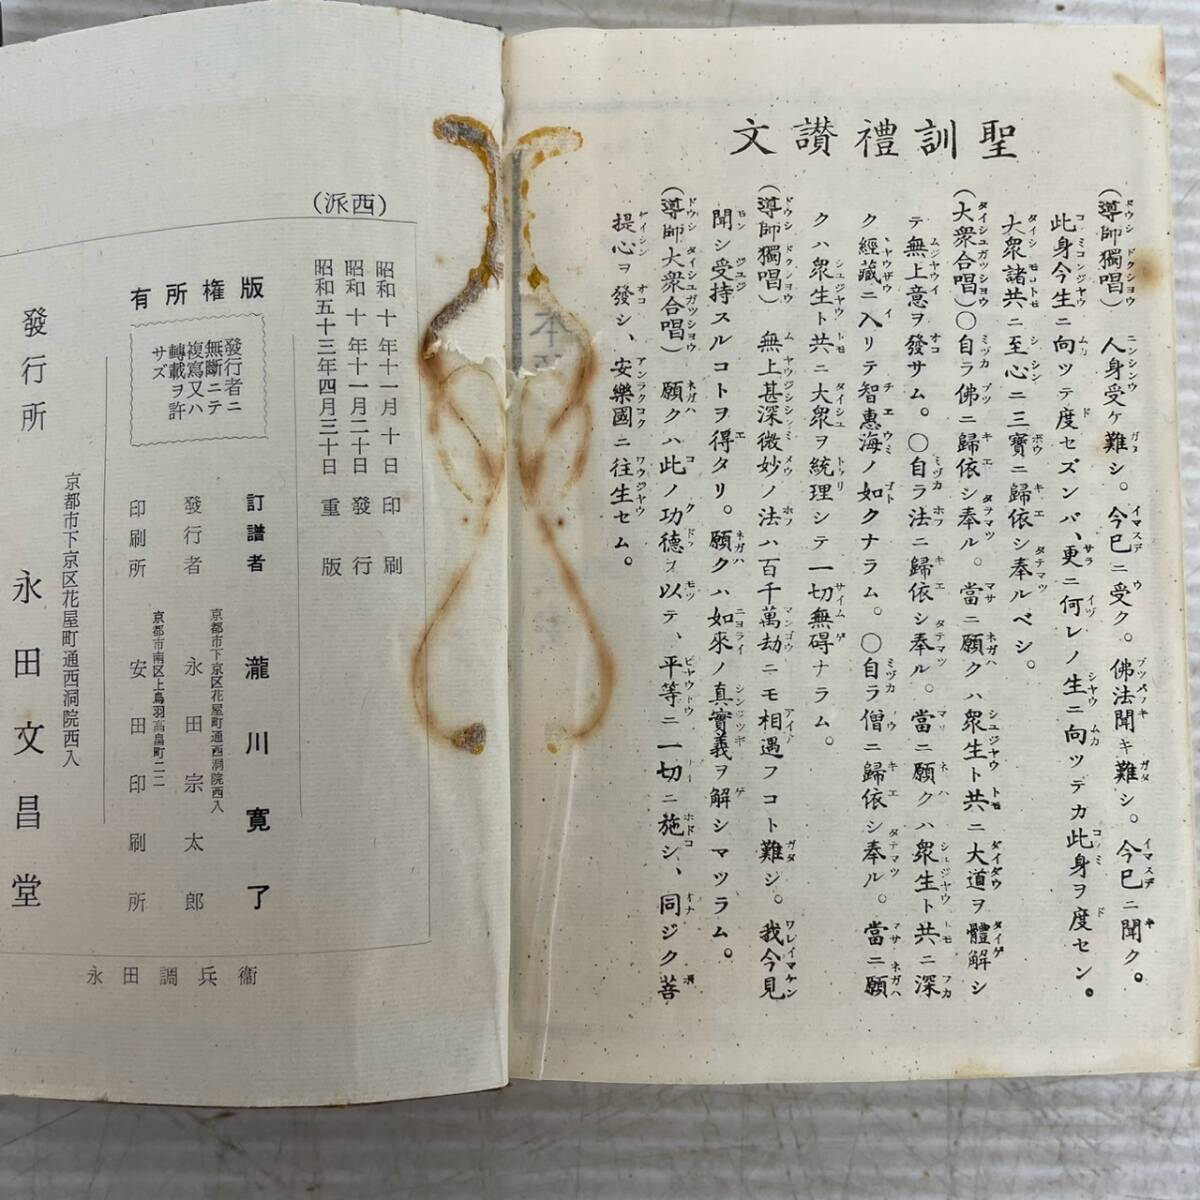 聖訓禮讃文
(導師獨唱) 人身受ケ難シ。今已ニ受ク。佛法聞キ難シ。今已ニ聞ク。
此身今生ニ向ツテ度セズンバ、更ニ何レノ生ニ向ツテカ此身ヲ度セン。
大衆諸共ニ至心ニ三寶ニ歸依シ奉ルベシ。
(大衆合唱)〇自ラ佛ニ歸依シ奉ル。當ニ願クハ衆生ト共ニ大道ヲ體解シ
テ無上意ヲ發サム。〇自ラ法ニ歸依シ奉ル。當ニ願クハ衆生ト共ニ深
ク經藏ニ入リテ智惠海ノ如クナラム。〇自ラ僧ニ歸依シ奉ル。當ニ願
クハ衆生ト共ニ大衆ヲ統理シテ一切無碍ナラム。
(導師獨唱) 無上甚深微妙ノ法ハ百千萬劫ニモ相遇フコト難シ。我今見
聞シ受持スルコトヲ得タリ。願クハ如來ノ眞實義ヲ解シマツラム。
(導師大衆合唱) 願クハ此ノ功德ヲ以テ、平等ニ一切ニ施シ、同ジク菩
提心ヲ發シ、安樂國ニ往生セム。
(西派)
昭和十年十一月十日 印刷
昭和十年十一月二十日 發行
昭和五十三年四月三十日 重版
版權所有
發行者ニ
無斷ニテ
複寫又ハ
轉載ヲ許
サズ
訂譜者 瀧川寛了
京都市下京区花屋町通西洞院西入
發行者 永田宗太郎
京都市南区上鳥羽高畠町二二
印刷所 安田印刷所
京都市下京区花屋町通西洞院西入
發行所 永田文昌堂
永田調兵衞
本